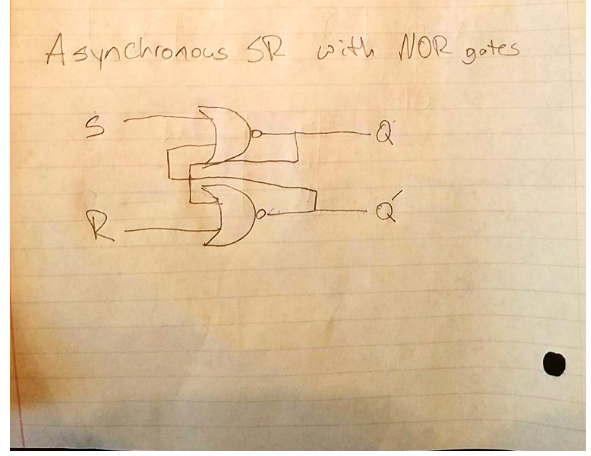 Asynchronous SR with NOR gates
S Q
R Q'